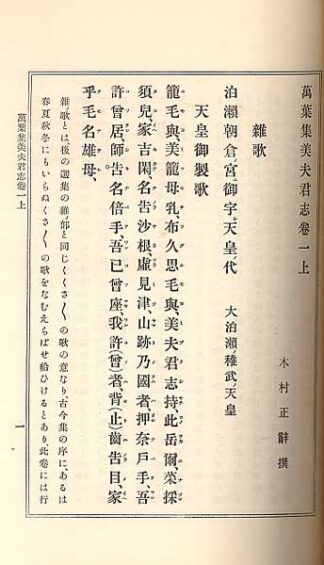 萬葉集美夫君志卷一上
木村正辭撰
雜歌
泊瀨朝倉宮御宇天皇代 大泊瀨稚武天皇
天皇御製歌
籠毛與、美籠母乳、布久思毛與、美夫君志持、此岳爾、菜採
須兒、家吉閑、名吿沙根、虛見津、山跡乃國者、押奈戶手、吾
許曾居、師吿名倍手、吾已曾座、我許(曾)者、背(止)齒吿目、家
乎毛名雄母、
雜歌とは後の選集の雜ノ部と同じくくさ〴〵の歌の意なり、古今集の序に、あるは
春夏秋冬にもいらぬくさ〴〵の歌をなむえらばせ給ひけるとあり、此卷には行
萬葉集美夫君志卷一上
一